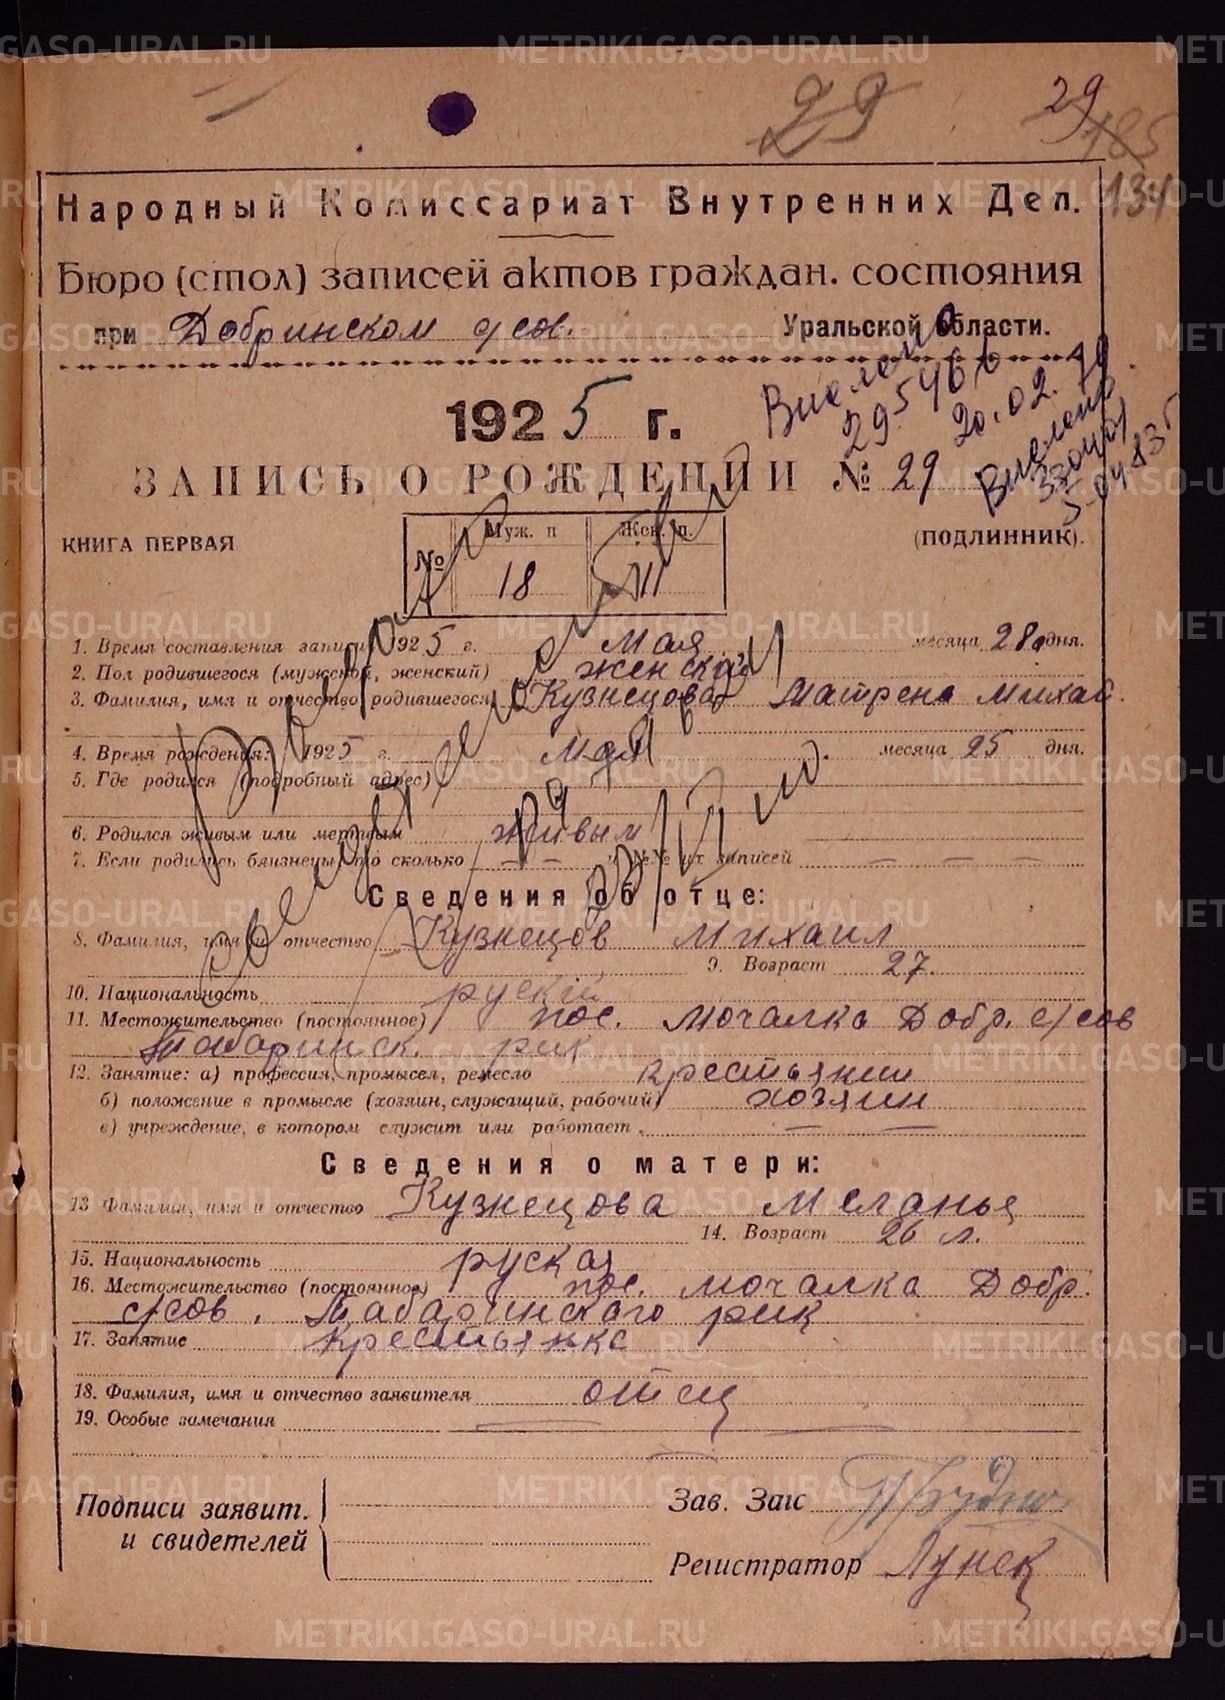 29
29
185
134
Народный Комиссариат Внутренних Дел.
Бюро (стол) записей актов граждан. состояния
при Добринском с/сов. Уральской области.
1925 г.
20.02.79
ЗАПИСЬ О РОЖДЕНИИ № 29
КНИГА ПЕРВАЯ
(ПОДЛИННИК).
№ Муж. п Жен. п.
18 11
1. Время составления записи 1925 г. Мая месяца 28 дня.
2. Пол родившегося (мужской, женский) женской
3. Фамилия, имя и отчество родившегося Кузнецова Матрена Михай.
4. Время рождения: 1925 г. Мая месяца 25 дня.
5. Где родился (подробный адрес)
6. Родился живым или мертвым живым
7. Если родились близнецы, то сколько — — и №№ их записей — — —
Сведения об отце:
8. Фамилия, имя и отчество Кузнецов Михаил
9. Возраст 27.
10. Национальность руский
11. Местожительство (постоянное) пос. Мочалка Добр. с/сов
Табаринск. рик
12. Занятие: а) профессия, промысел, ремесло крестьянин
б) положение в промысле (хозяин, служащий, рабочий) хозяин
в) учреждение, в котором служит или работает — —
Сведения о матери:
13 Фамилия, имя и отчество Кузнецова Меланья
14. Возраст 26 л.
15. Национальность руская
16. Местожительство (постоянное) пос. Мочалка Добр.
с/сов. Табаринскаго рик
17. Занятие крестьянка
18. Фамилия, имя и отчество заявителя отец
19. Особые замечания
Подписи заявит.
и свидетелей
Зав. Загс
Регистратор Лунек
METRIKI.GASO-URAL.RU